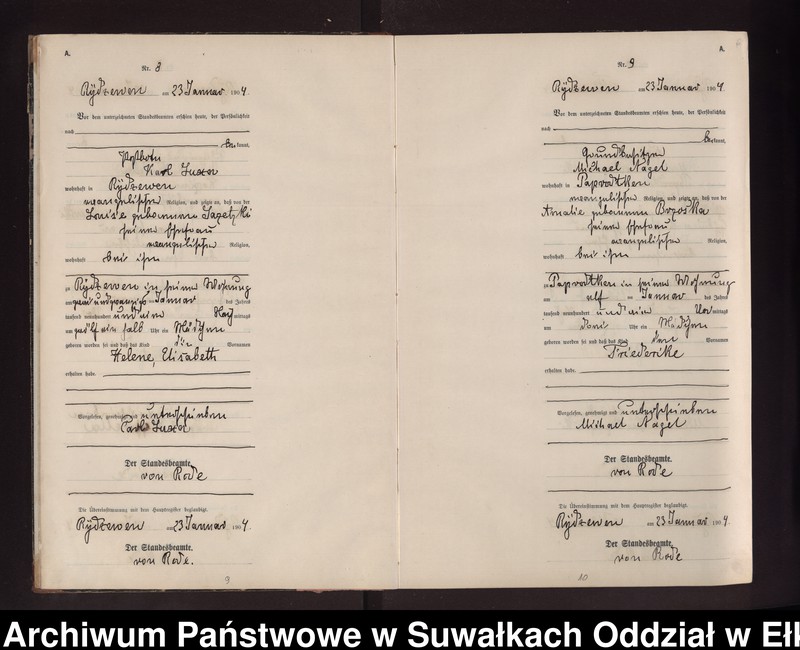 A.
Nr. 8
Rÿdzewen am 23 Januar 1904.
Vor dem unterzeichneten Standesbeamten erschien heute, der Persönlichkeit
nach
bekannt,
Karl
wohnhaft in Rÿdzewen
evangelischer Religion, und zeigte an, daß von der
Louise geborenen
seiner Ehefrau
evangelischer Religion,
wohnhaft bei ihm
zu Rÿdzewen in seiner Wohnung
am zweiundzwanzigsten Januar des Jahres
tausend neunhundert und vier Nachmittags
um zwölfeinhalb Uhr ein Mädchen
geboren worden sei und daß das Kind die Vornamen
Helene, Elisabeth
erhalten habe.
Vorgelesen, genehmigt und unterschrieben
Karl
Der Standesbeamte.
von Rode
Die Übereinstimmung mit dem Hauptregister beglaubigt.
Rÿdzewen am 23 Januar 1904.
Der Standesbeamte.
von Rode.
9
A.
Nr. 9
Rÿdzewen am 23 Januar 1904.
Vor dem unterzeichneten Standesbeamten erschien heute, der Persönlichkeit
nach
bekannt,
Grundbesitzer
Michael Nagel
wohnhaft in Paprodtken
evangelischer Religion, und zeigte an, daß von der
Amalie geborenen Brzoska
seiner Ehefrau
evangelischer Religion,
wohnhaft bei ihm
zu Paprodtken in seiner Wohnung
am elf ten Januar des Jahres
tausend neunhundert und vier Vormittags
um drei Uhr ein Mädchen
geboren worden sei und daß das Kind den Vornamen
Friederike
erhalten habe.
Vorgelesen, genehmigt und unterschrieben
Michael Nagel
Der Standesbeamte.
von Rode
Die Übereinstimmung mit dem Hauptregister beglaubigt.
Rÿdzewen am 23 Januar 1904.
Der Standesbeamte.
von Rode
10
Archiwum Państwowe w Suwałkach Oddział w Ełk